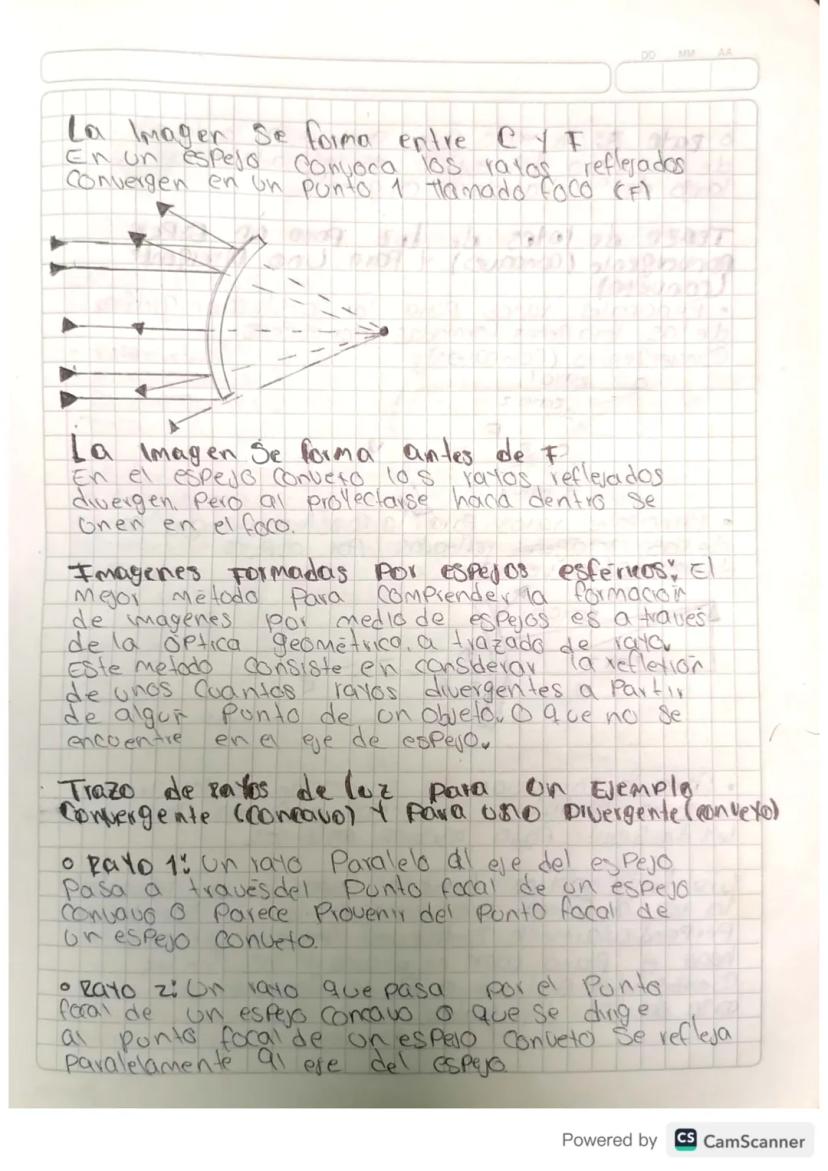 DD MM AA
La Imagen se forma entre C y F
En un espejo convoca los rayos reflejados
convergen en un punto 1 llamado foco (F)
La imagen se forma antes de F
En el espejo conveto los rayos reflejados
divergen. Pero al proyectarse hacia dentro se
unen en el foco.
Imagenes Formadas Por espejos esféricos: El
mejor método para comprender la formación
de imagenes por medio de espejos es a través
de la óptica geométrica. a trazado de rayo.
Este metodo consiste en considerar la reflexión
de unos cuantos rayos divergentes a Partir
de algun Punto de un objeto. O que no se
encuentre en el eje de espejo.
Trazo de rayos de luz para un Ejemplo
Convergente (concavo) y para uno Divergente (convexo)
o Rayo 1: Un rayo Paralelo al eje del espejo
Pasa a través del Punto focal de un espejo
concavo o Parece Provenir del Punto focal de
un espejo conveto.
o Rayo 2: Un rayo que pasa por el Punto
focal de un espejo concavo o que se dirige
al punto focal de un espejo conveto se refleja
paralelamente al eje del espejo.
Powered by CS CamScanner